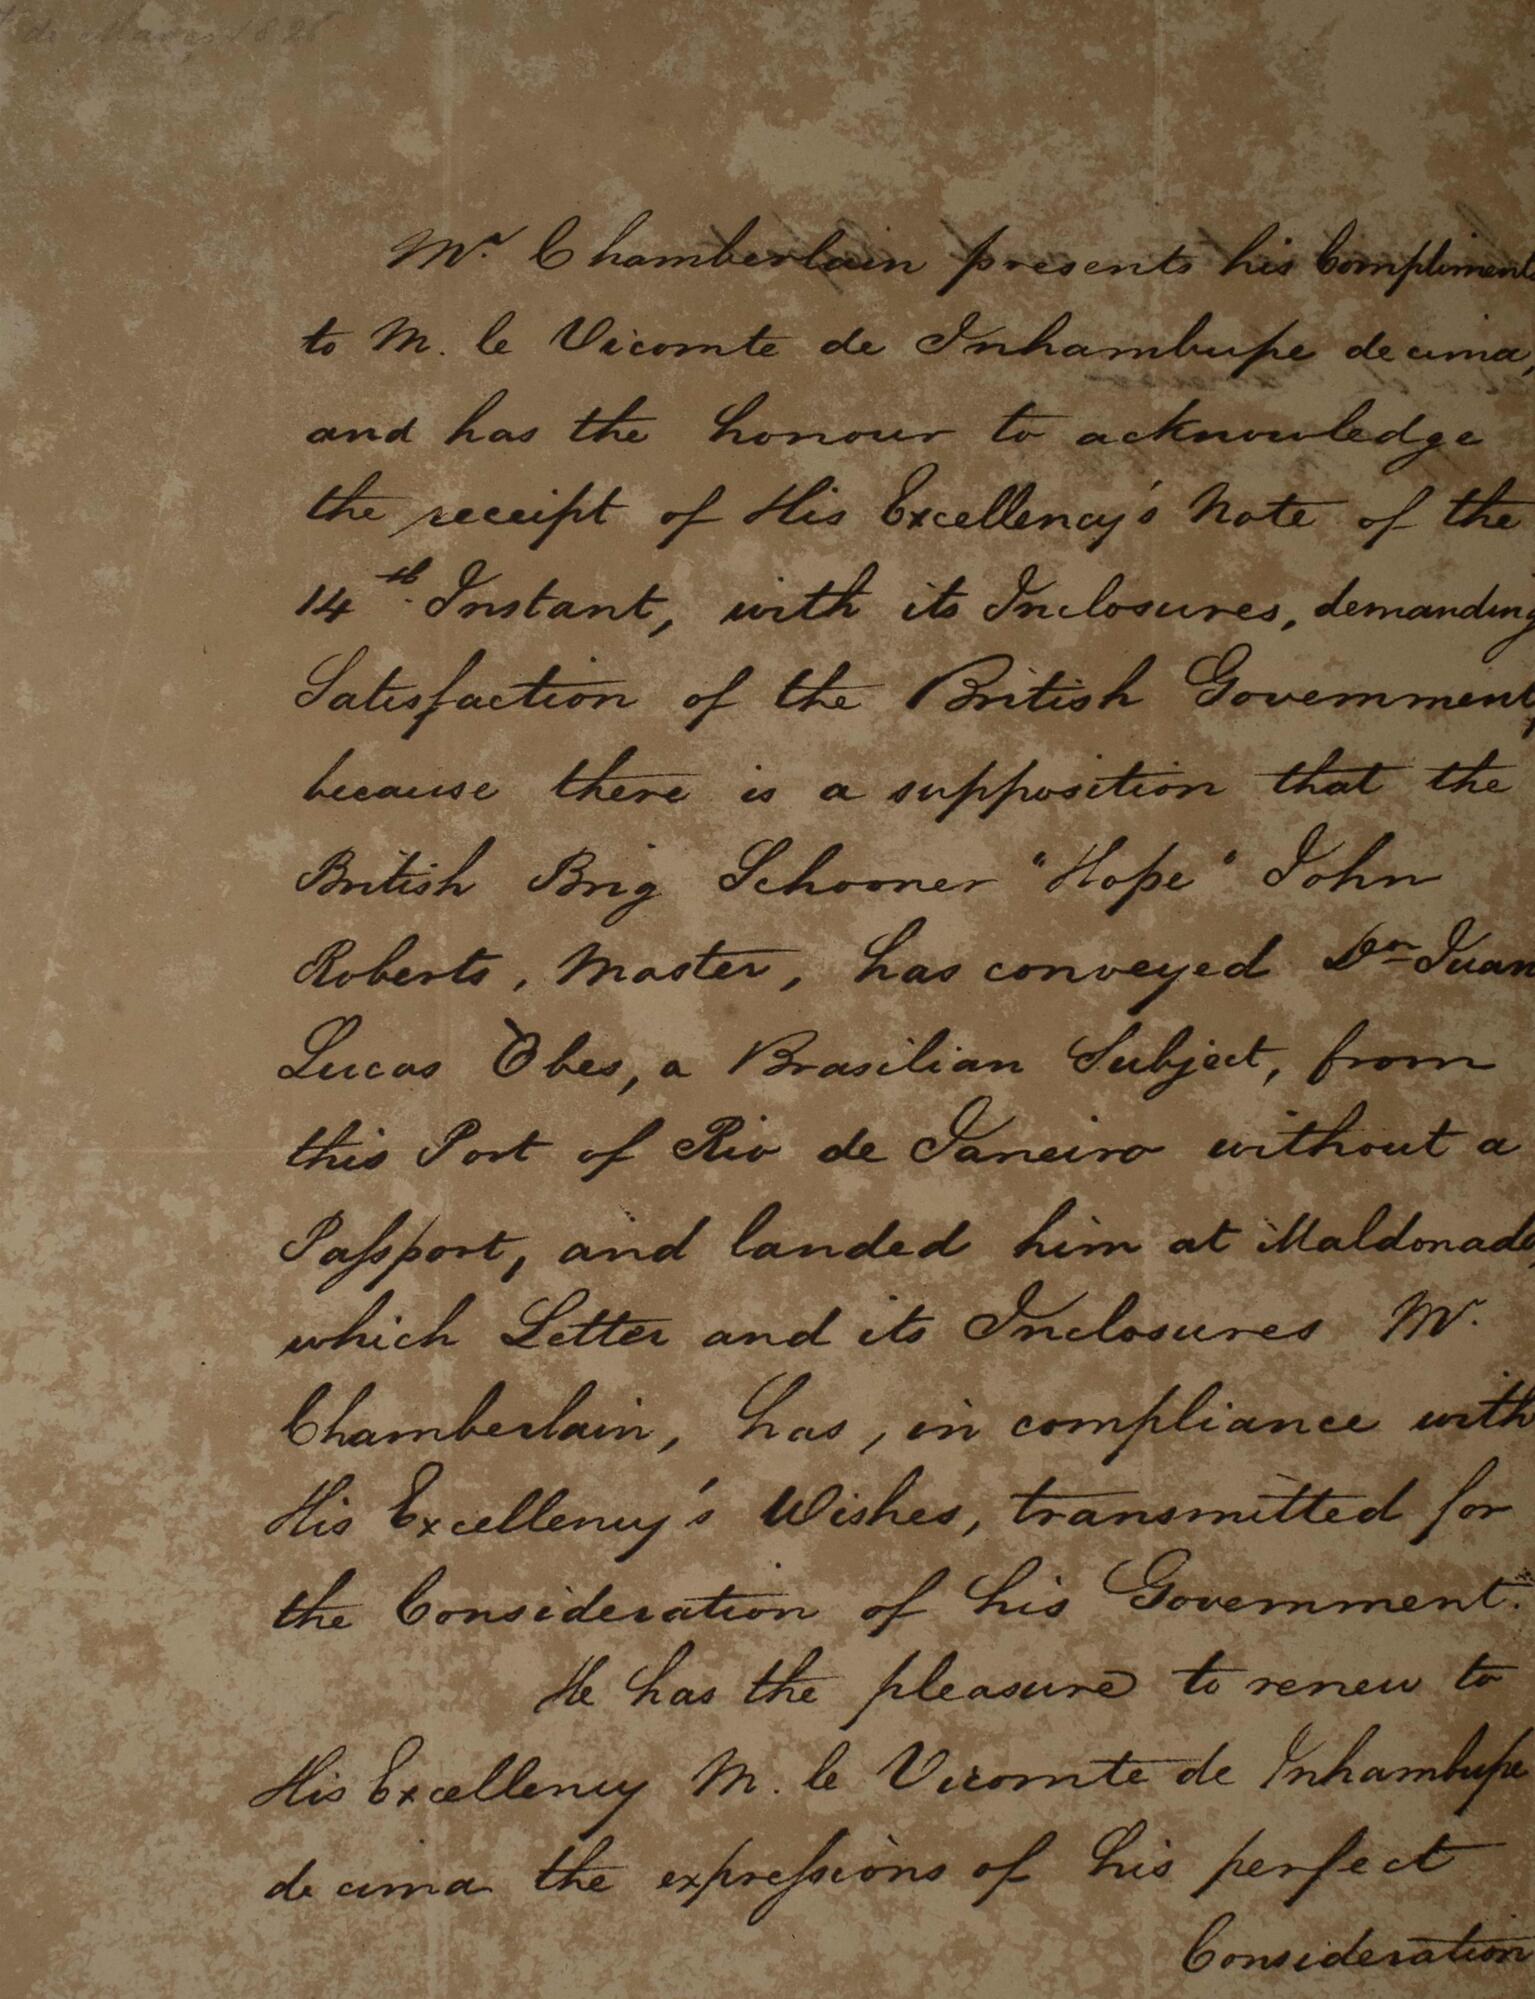 de Março 1826
Mr. Chamberlain presents his Compliment
to M. le Vicomte de Inhambupe de cima,
and has the honour to acknowledge
the receipt of His Excellency's Note of the
14th. Instant, with its Inclosures, demanding
Satisfaction of the British Government,
because there is a supposition that the
British Brig Schooner "Hope" John
Roberts, Master, has conveyed Don Juan
Lucas Obes, a Brasilian Subject, from
this Port of Rio de Janeiro without a
Paſsport, and landed him at Maldonado,
which Letter and its Inclosures Mr.
Chamberlain, has, in compliance with
His Excellency's Wishes, transmitted for
the Consideration of his Government.
He has the pleasure to renew to
His Excellency M. le Vicomte de Inhambupe
de cima the expreſsions of his perfect
Consideration